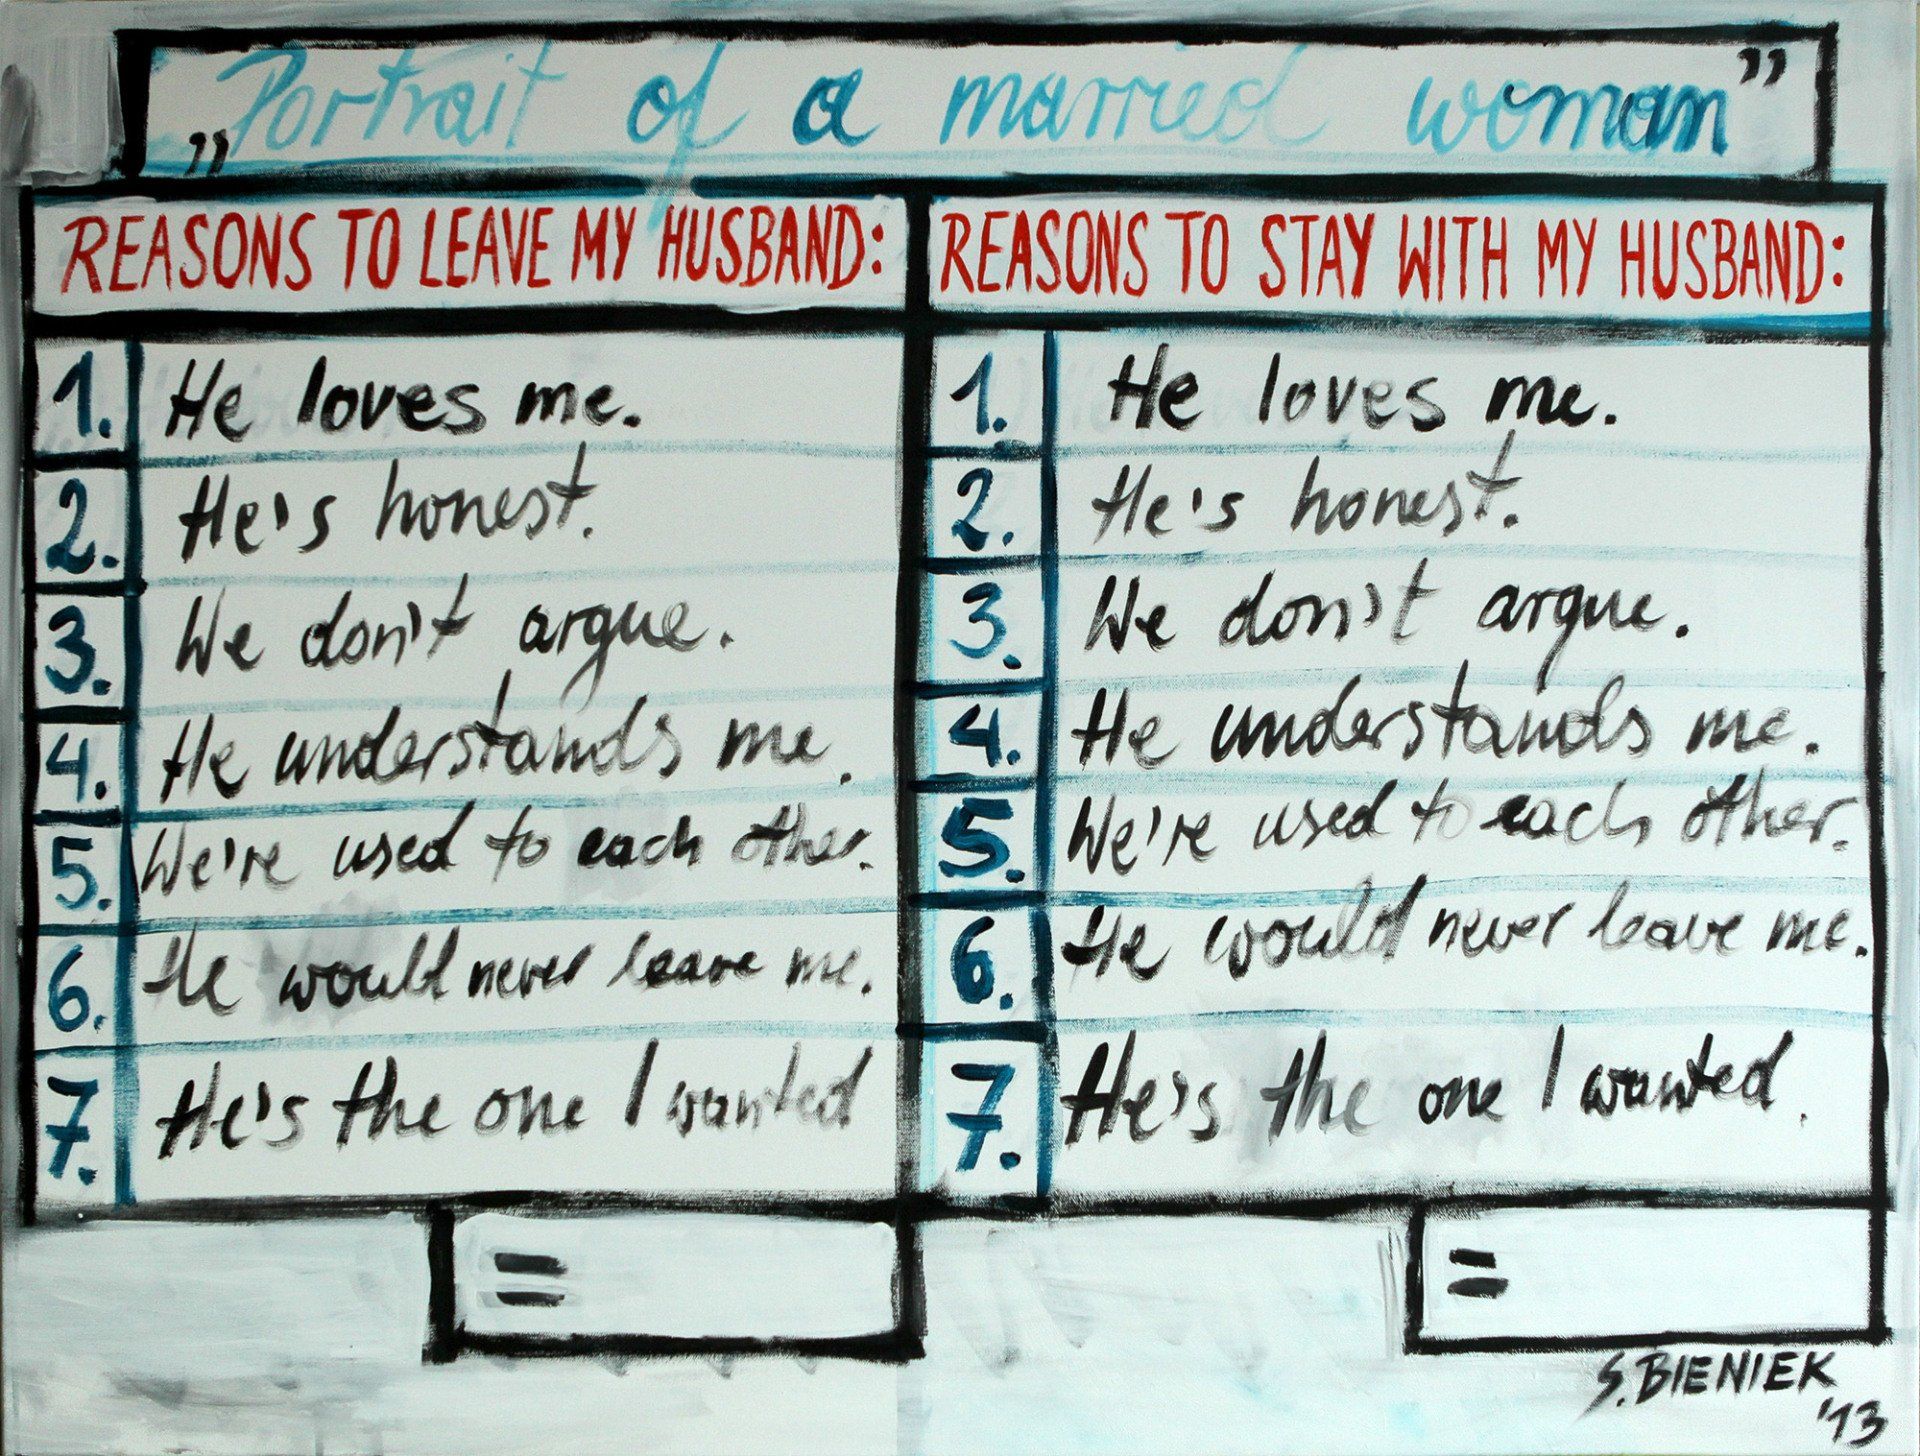 „Portrait of a married woman”
REASONS TO LEAVE MY HUSBAND:
1. He loves me.
2. He's honest.
3. We don't argue.
4. He understands me.
5. We're used to each other.
6. He would never leave me.
7. He's the one I wanted
=
REASONS TO STAY WITH MY HUSBAND:
1. He loves me.
2. He's honest.
3. We don't argue.
4. He understands me.
5. We're used to each other.
6. He would never leave me.
7. He's the one I wanted.
=
S. BIENIEK
'13